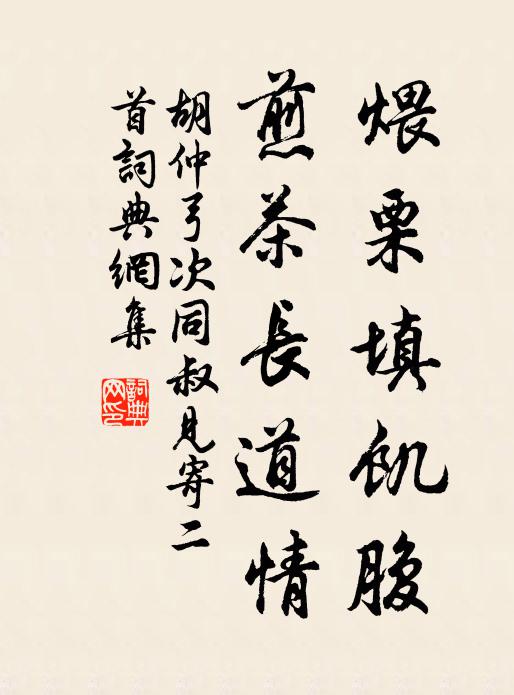 煨栗填飢腹
煎茶長道情
胡仲弓次同叔見寄二
首詞典網集
詞典
网印